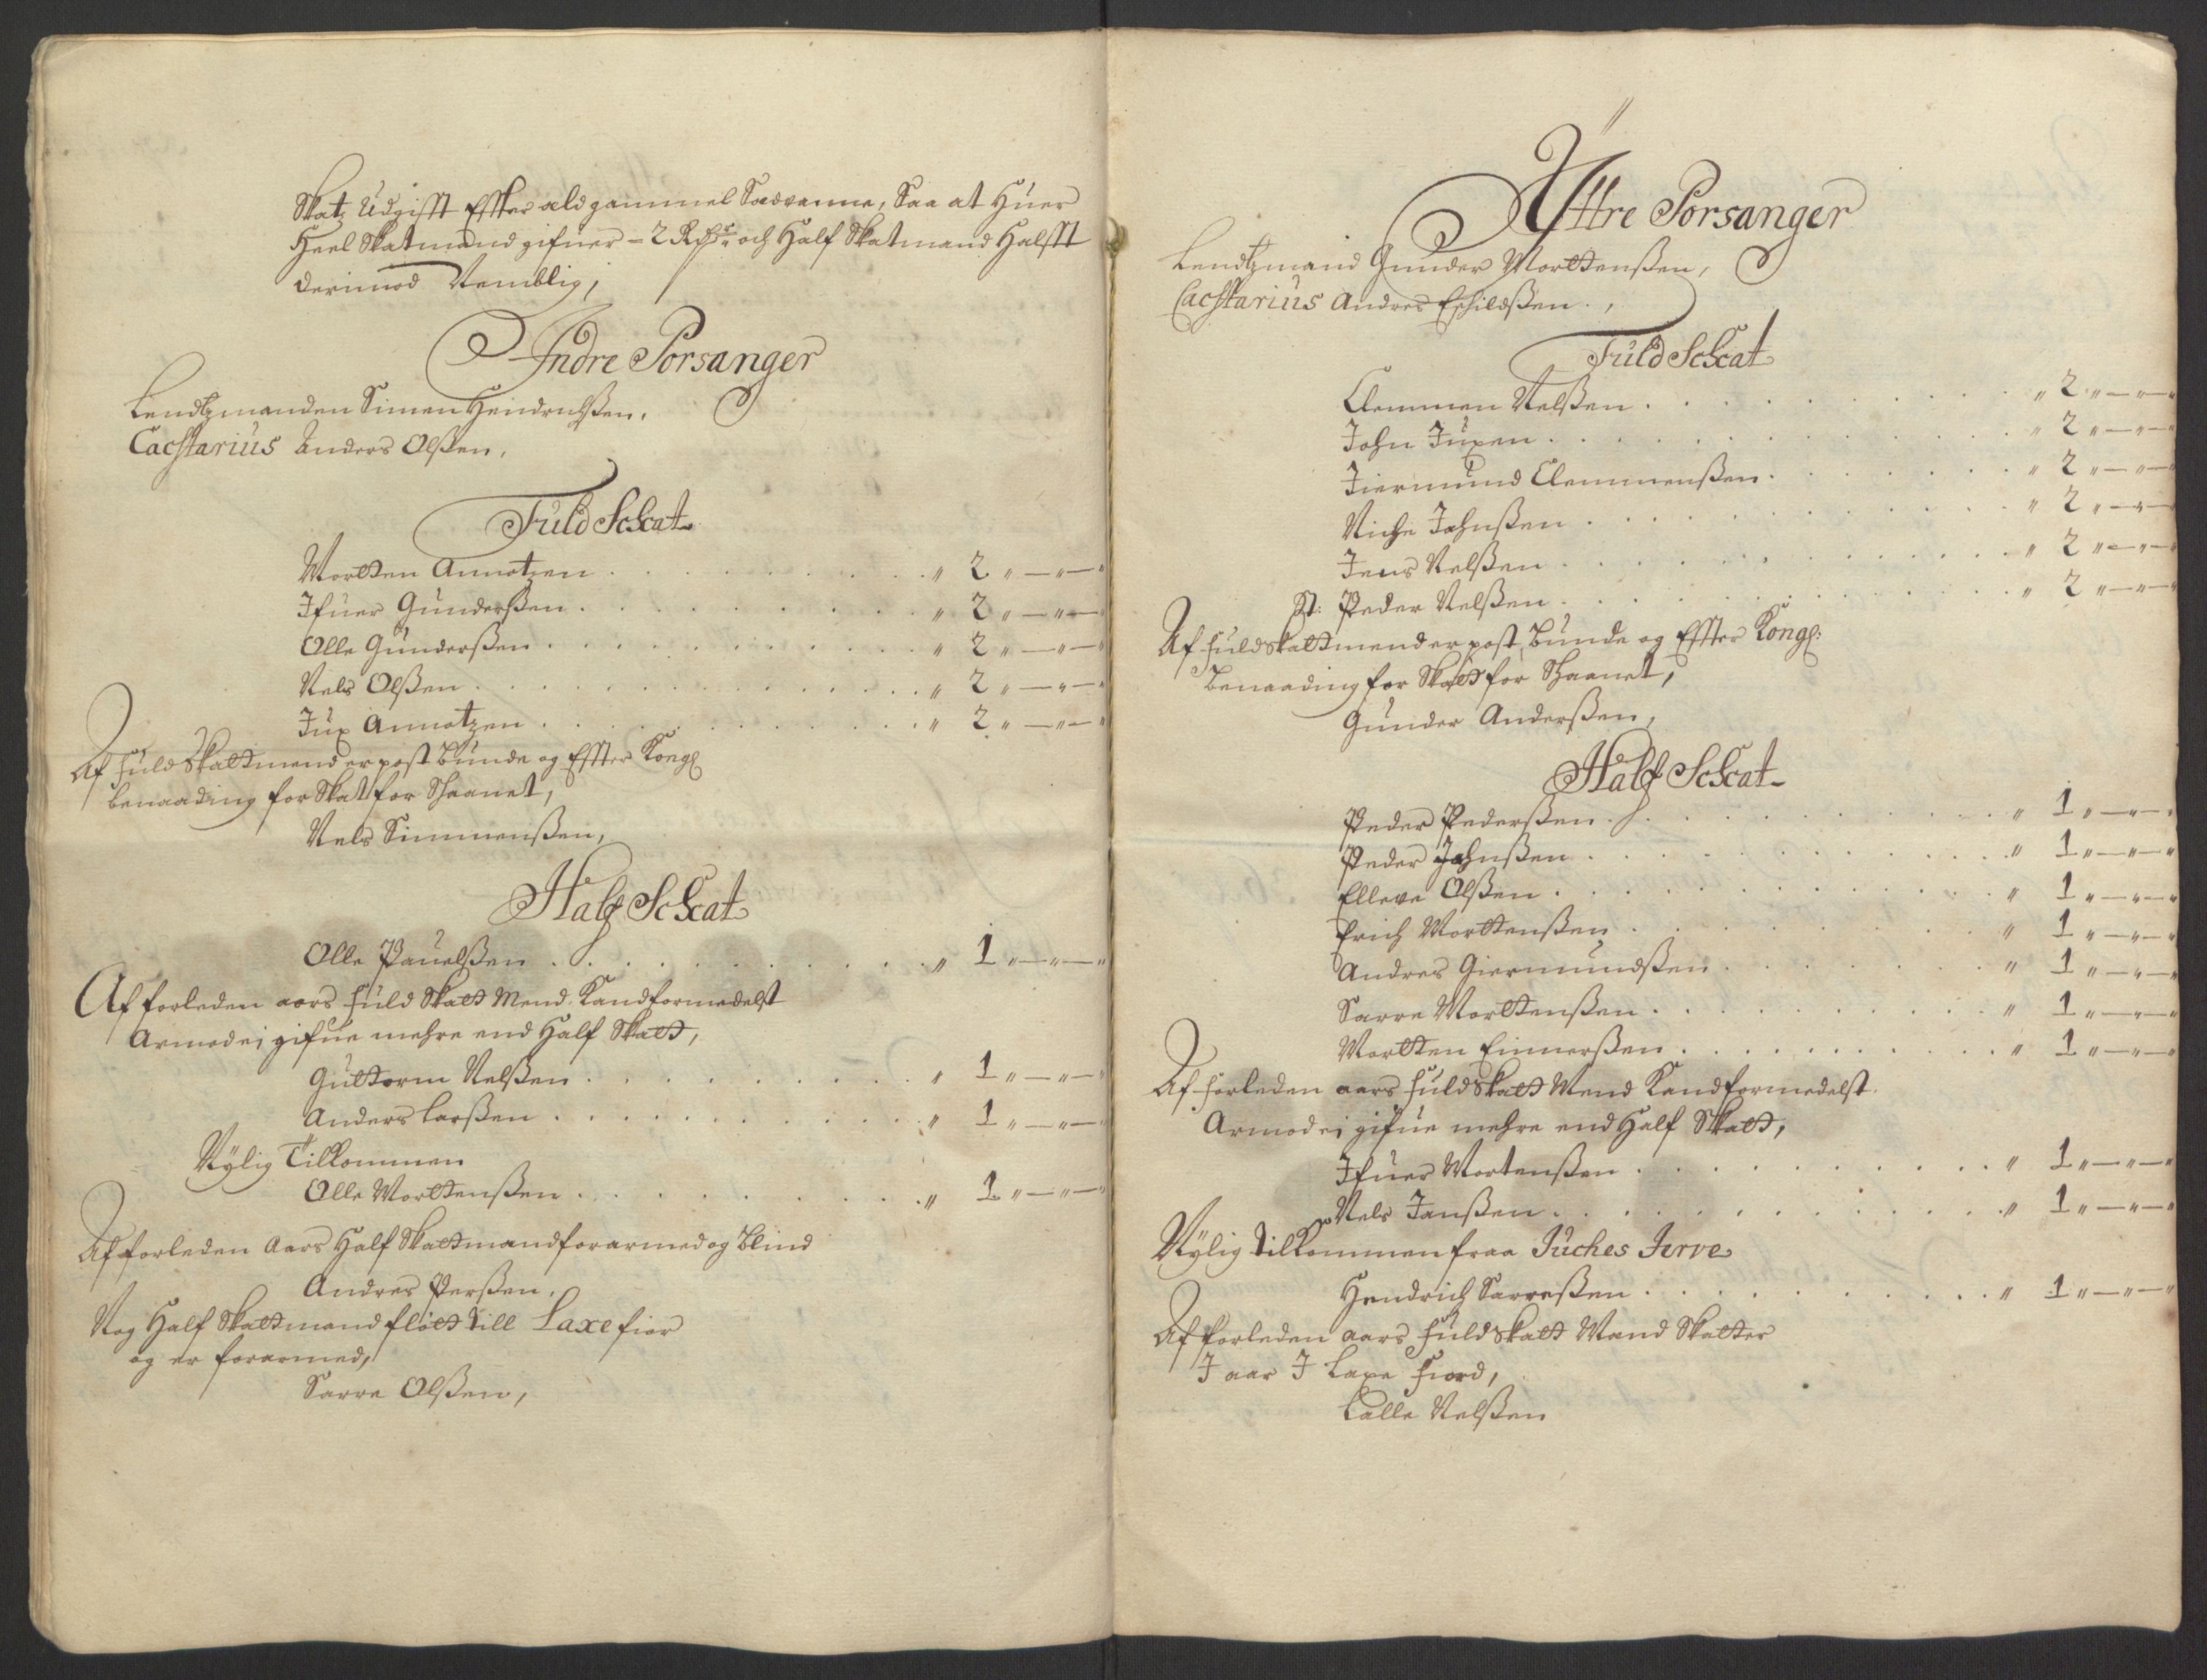 Skatz Udgifft Effter ald gammel Sædvanne, Saa at Huer
Heel Skatmand gifuer = 2 Rdlr och Half Skatmand Halfft
derimod Nemblig,
Indre Porsanger
Lendtzmanden Simen Hendrichßen,
Cacstarius Anders Olßen,
Fuld Schat
Mortten Amotzen . . . . . . . . . „ 2 „ — „ — „
Ifuer Gunderßen . . . . . . . . . „ 2 „ — „ — „
Olle Gunderßen . . . . . . . . . „ 2 „ — „ — „
Nels Olßen . . . . . . . . . „ 2 „ — „ — „
Jux Amotzen . . . . . . . . . „ 2 „ — „ — „
Af fuld Skattmend er post Bunde og Effter Kongl
benaading for Skatt for Skaanet,
Nels Simmenßen,
Half Schat
Olle Pauelßen . . . . . . . . . „ 1 „ — „ — „
Af forleden aars fuld Skatt Mend Kand formedelst
Armod ei gifue mehre end Half Skatt,
Guttorm Nelßen . . . . . . . . . „ 1 „ — „ — „
Anders Larßen . . . . . . . . . „ 1 „ — „ — „
Nylig Tilkommen
Olle Morttenßen . . . . . . . . . „ 1 „ — „ — „
Af forleden Aars Half Skattmand forarmed og Blind
Andres Perßen,
Nog Half Skattmand fløtt till Laxe fior
og er forarmed,
Sarre Olßen,
Yttre Porsanger
Lendtzmand Gunder Morttenßen,
Cacstarius Andres Eschildßen . ,
Fuld Schat
Clemmen Nelßen . . . . . . . . . „ 2 „ — „ — „
John Juxen . . . . . . . . . „ 2 „ — „ — „
Jiermund Clemmenßen . . . . . . . . . „ 2 „ — „ — „
Niche Johnßen . . . . . . . . . „ 2 „ — „ — „
Jens Nelßen . . . . . . . . . „ 2 „ — „ — „
St: Peder Nelßen . . . . . . . . . „ 2 „ — „ — „
Af fuld Skattmend er post Bunde og Effter Kongl:
Benaading for Skatt for Skaanet,
Gunder Anderßen,
Half Schat
Peder Pederßen . . . . . . . . . „ 1 „ — „ — „
Peder Johnßen . . . . . . . . . „ 1 „ — „ — „
Elleve Olßen . . . . . . . . . „ 1 „ — „ — „
Erich Morttenßen . . . . . . . . . „ 1 „ — „ — „
Andres Giermundßen . . . . . . . . . „ 1 „ — „ — „
Sarre Morttenßen . . . . . . . . . „ 1 „ — „ — „
Mortten Einnerßen . . . . . . . . . „ 1 „ — „ — „
Af forleden aars fuld Skatt Mend Kand formedelst
Armod ei gifue mehre end Half Skatt,
Ifuer Mortenßen . . . . . . . . . „ 1 „ — „ — „
Nels Janßen . . . . . . . . . „ 1 „ — „ — „
Nylig tilkommen fraa Juches Jerve
Hendrich Sarreßen . . . . . . . . . „ 1 „ — „ — „
Af forleden aars fuld Skatt Mand Skatter
I aar I Laxe fiord,
Lalle Nelßen